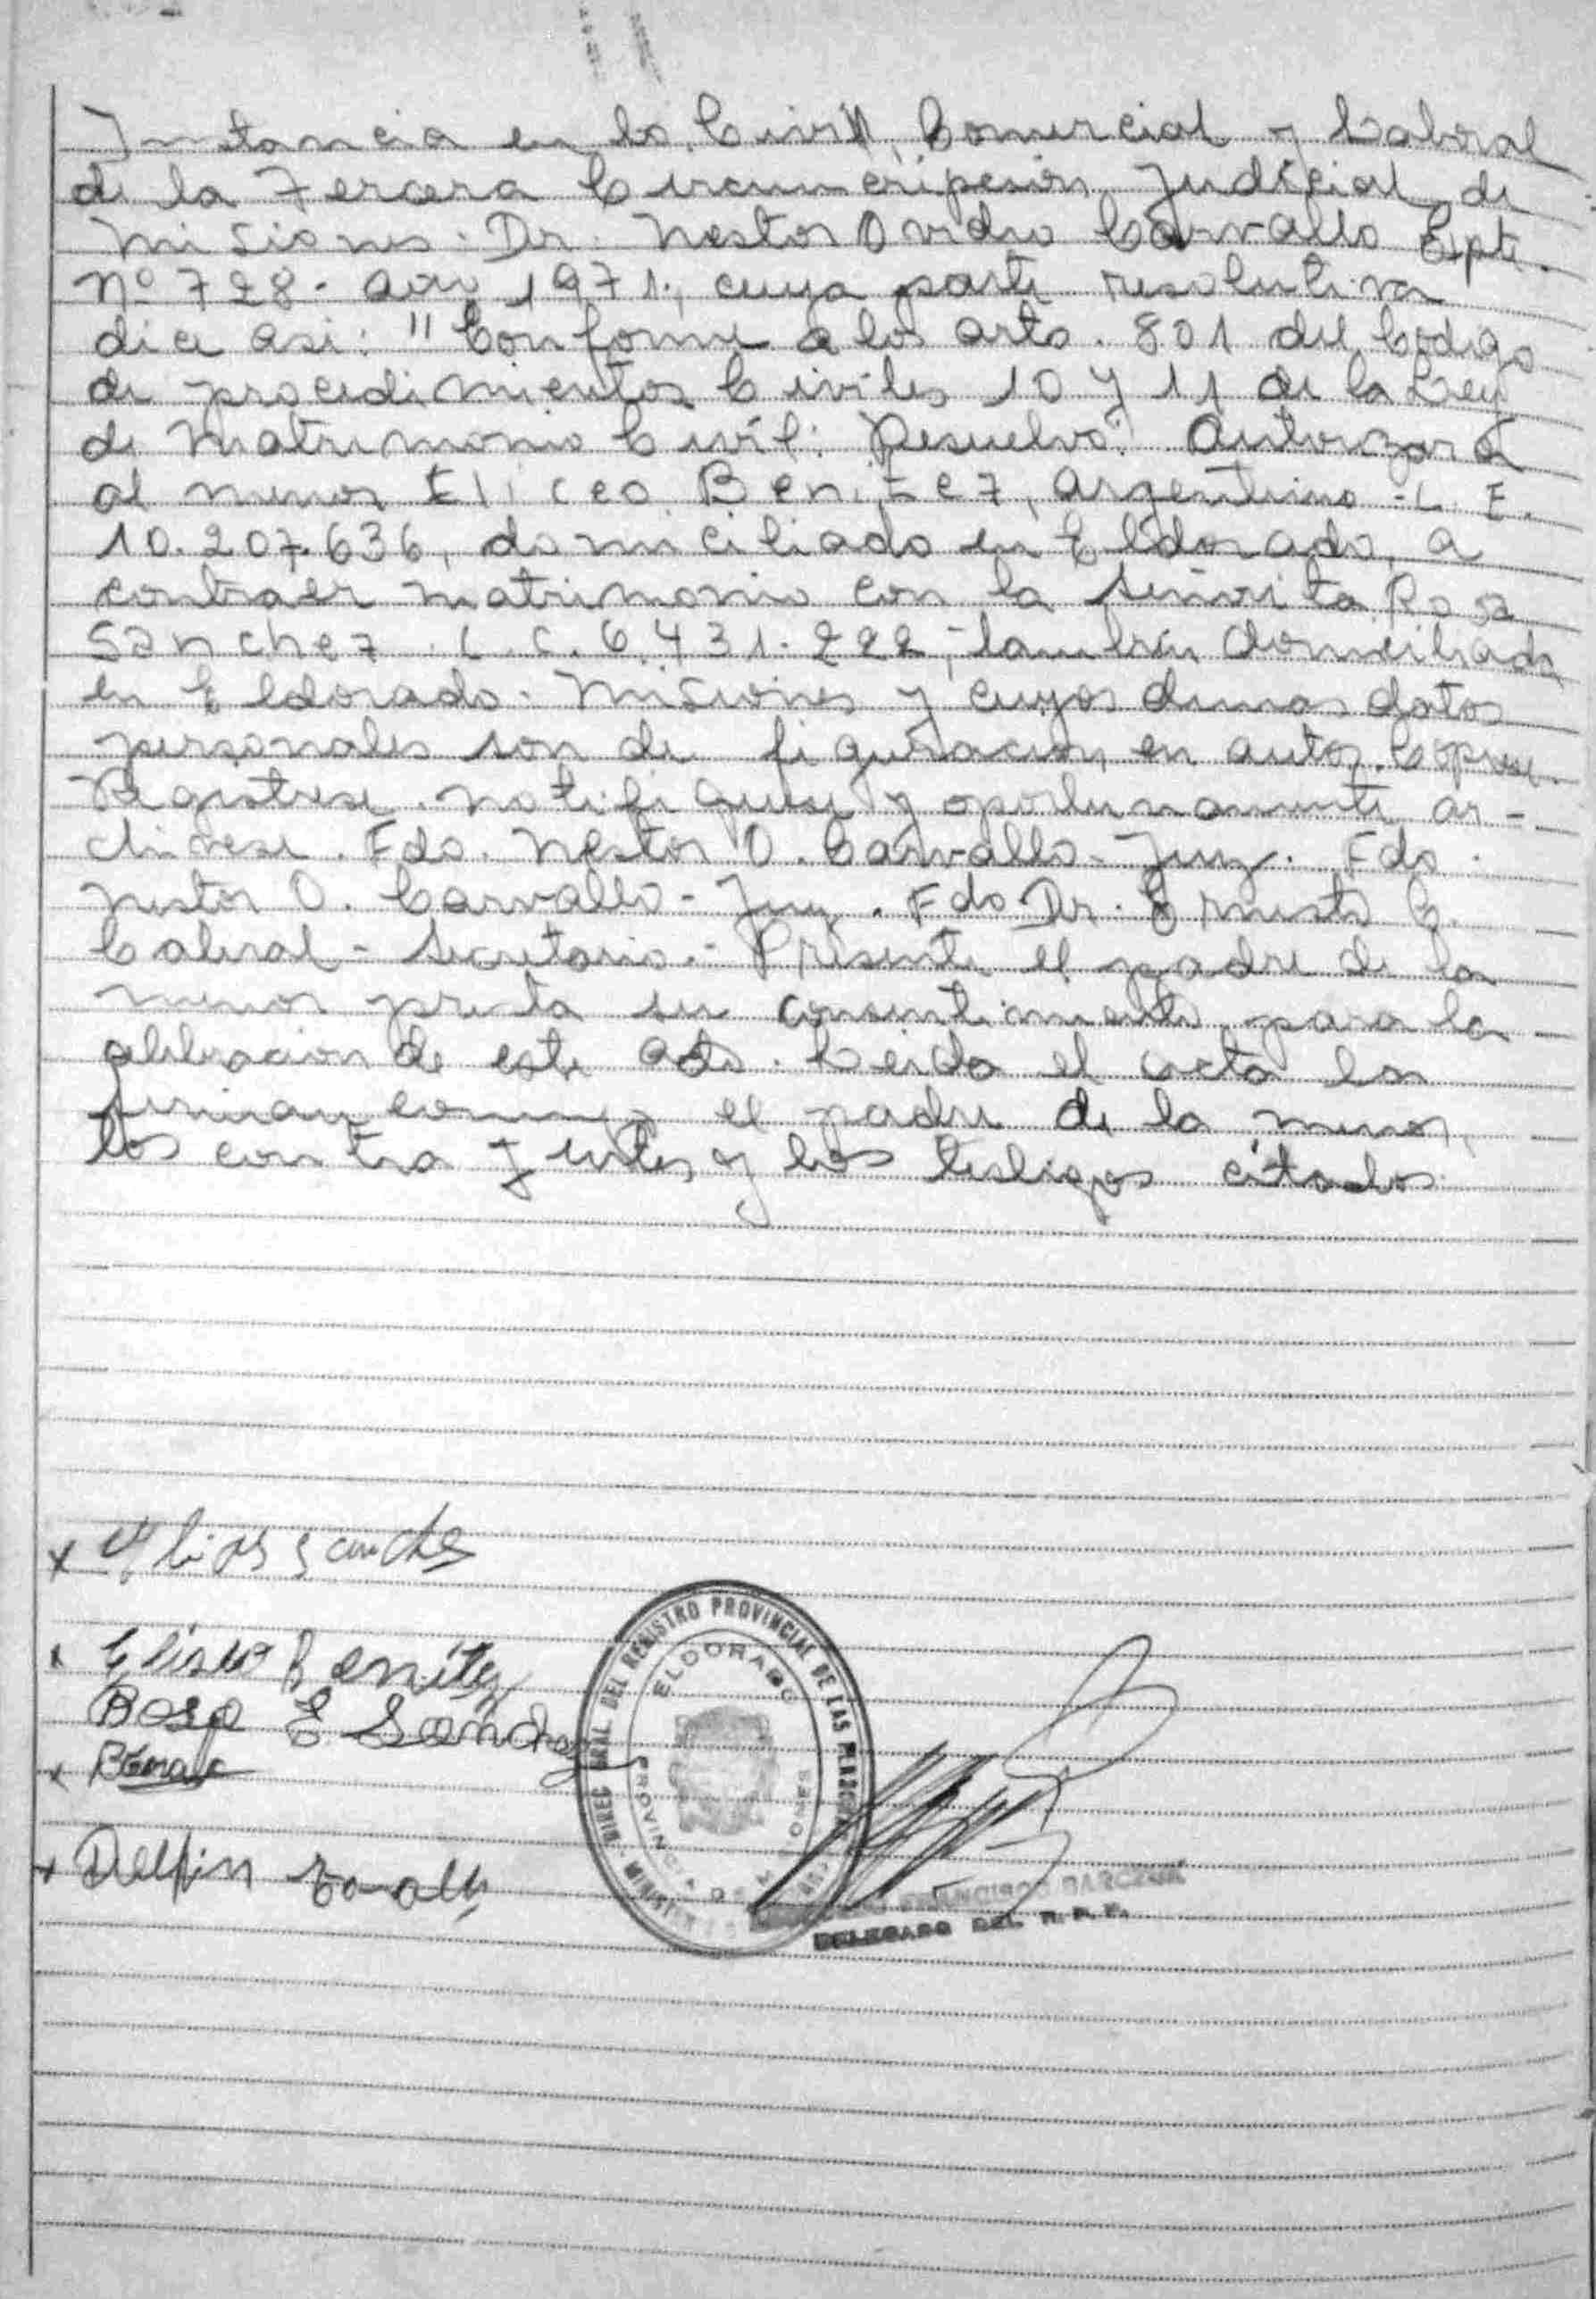 Instancia en lo Civil, Comercial y Laboral
de la Tercera Circunscripción Judicial de
Misiones. Dr. Nestor Ovidio Carvallo Expte.
Nº 728. año 1971., cuya parte resolutiva
dice asi: "Conforme a los arts. 801 del Codigo
de procedimientos Civiles 10 y 11 de la Ley
de Matrimonio Civil: Resuelvo: Autorizar a
al menor Eliceo Benitez, argentino - L. E.
10.207.636, domiciliado en Eldorado, a
contraer matrimonio con la señorita Rosa
Sanchez L. C. 6.431.222, tambien domiciliada
en Eldorado. Misiones y cuyos demas datos
personales son de figuracion en autos. Copiese.
Registrese. Notifiquese y oportunamente ar-
chivese. Fdo. Nestor O. Carvallo - Juez. Fdo.
Nestor O. Carvallo - Juez. Fdo Dr. Ernesto C.
Cabral - Secretario. - Presente el padre de la
menor presta su consentimiento para la
celebracion de este acto. Leida el acta la
firman conmigo el padre de la menor,
los contrayentes y los testigos citados.
Elias Sanches
Eliseo Benitez
Rosa E Sanchez
Delfin
DIREC. GRAL. DEL REGISTRO PROVINCIAL DE LAS PERSONAS
ELDORADO
PROVINCIA DE MISIONES
FRANCISCO BARCZUK
DELEGADO DEL R. P. P.